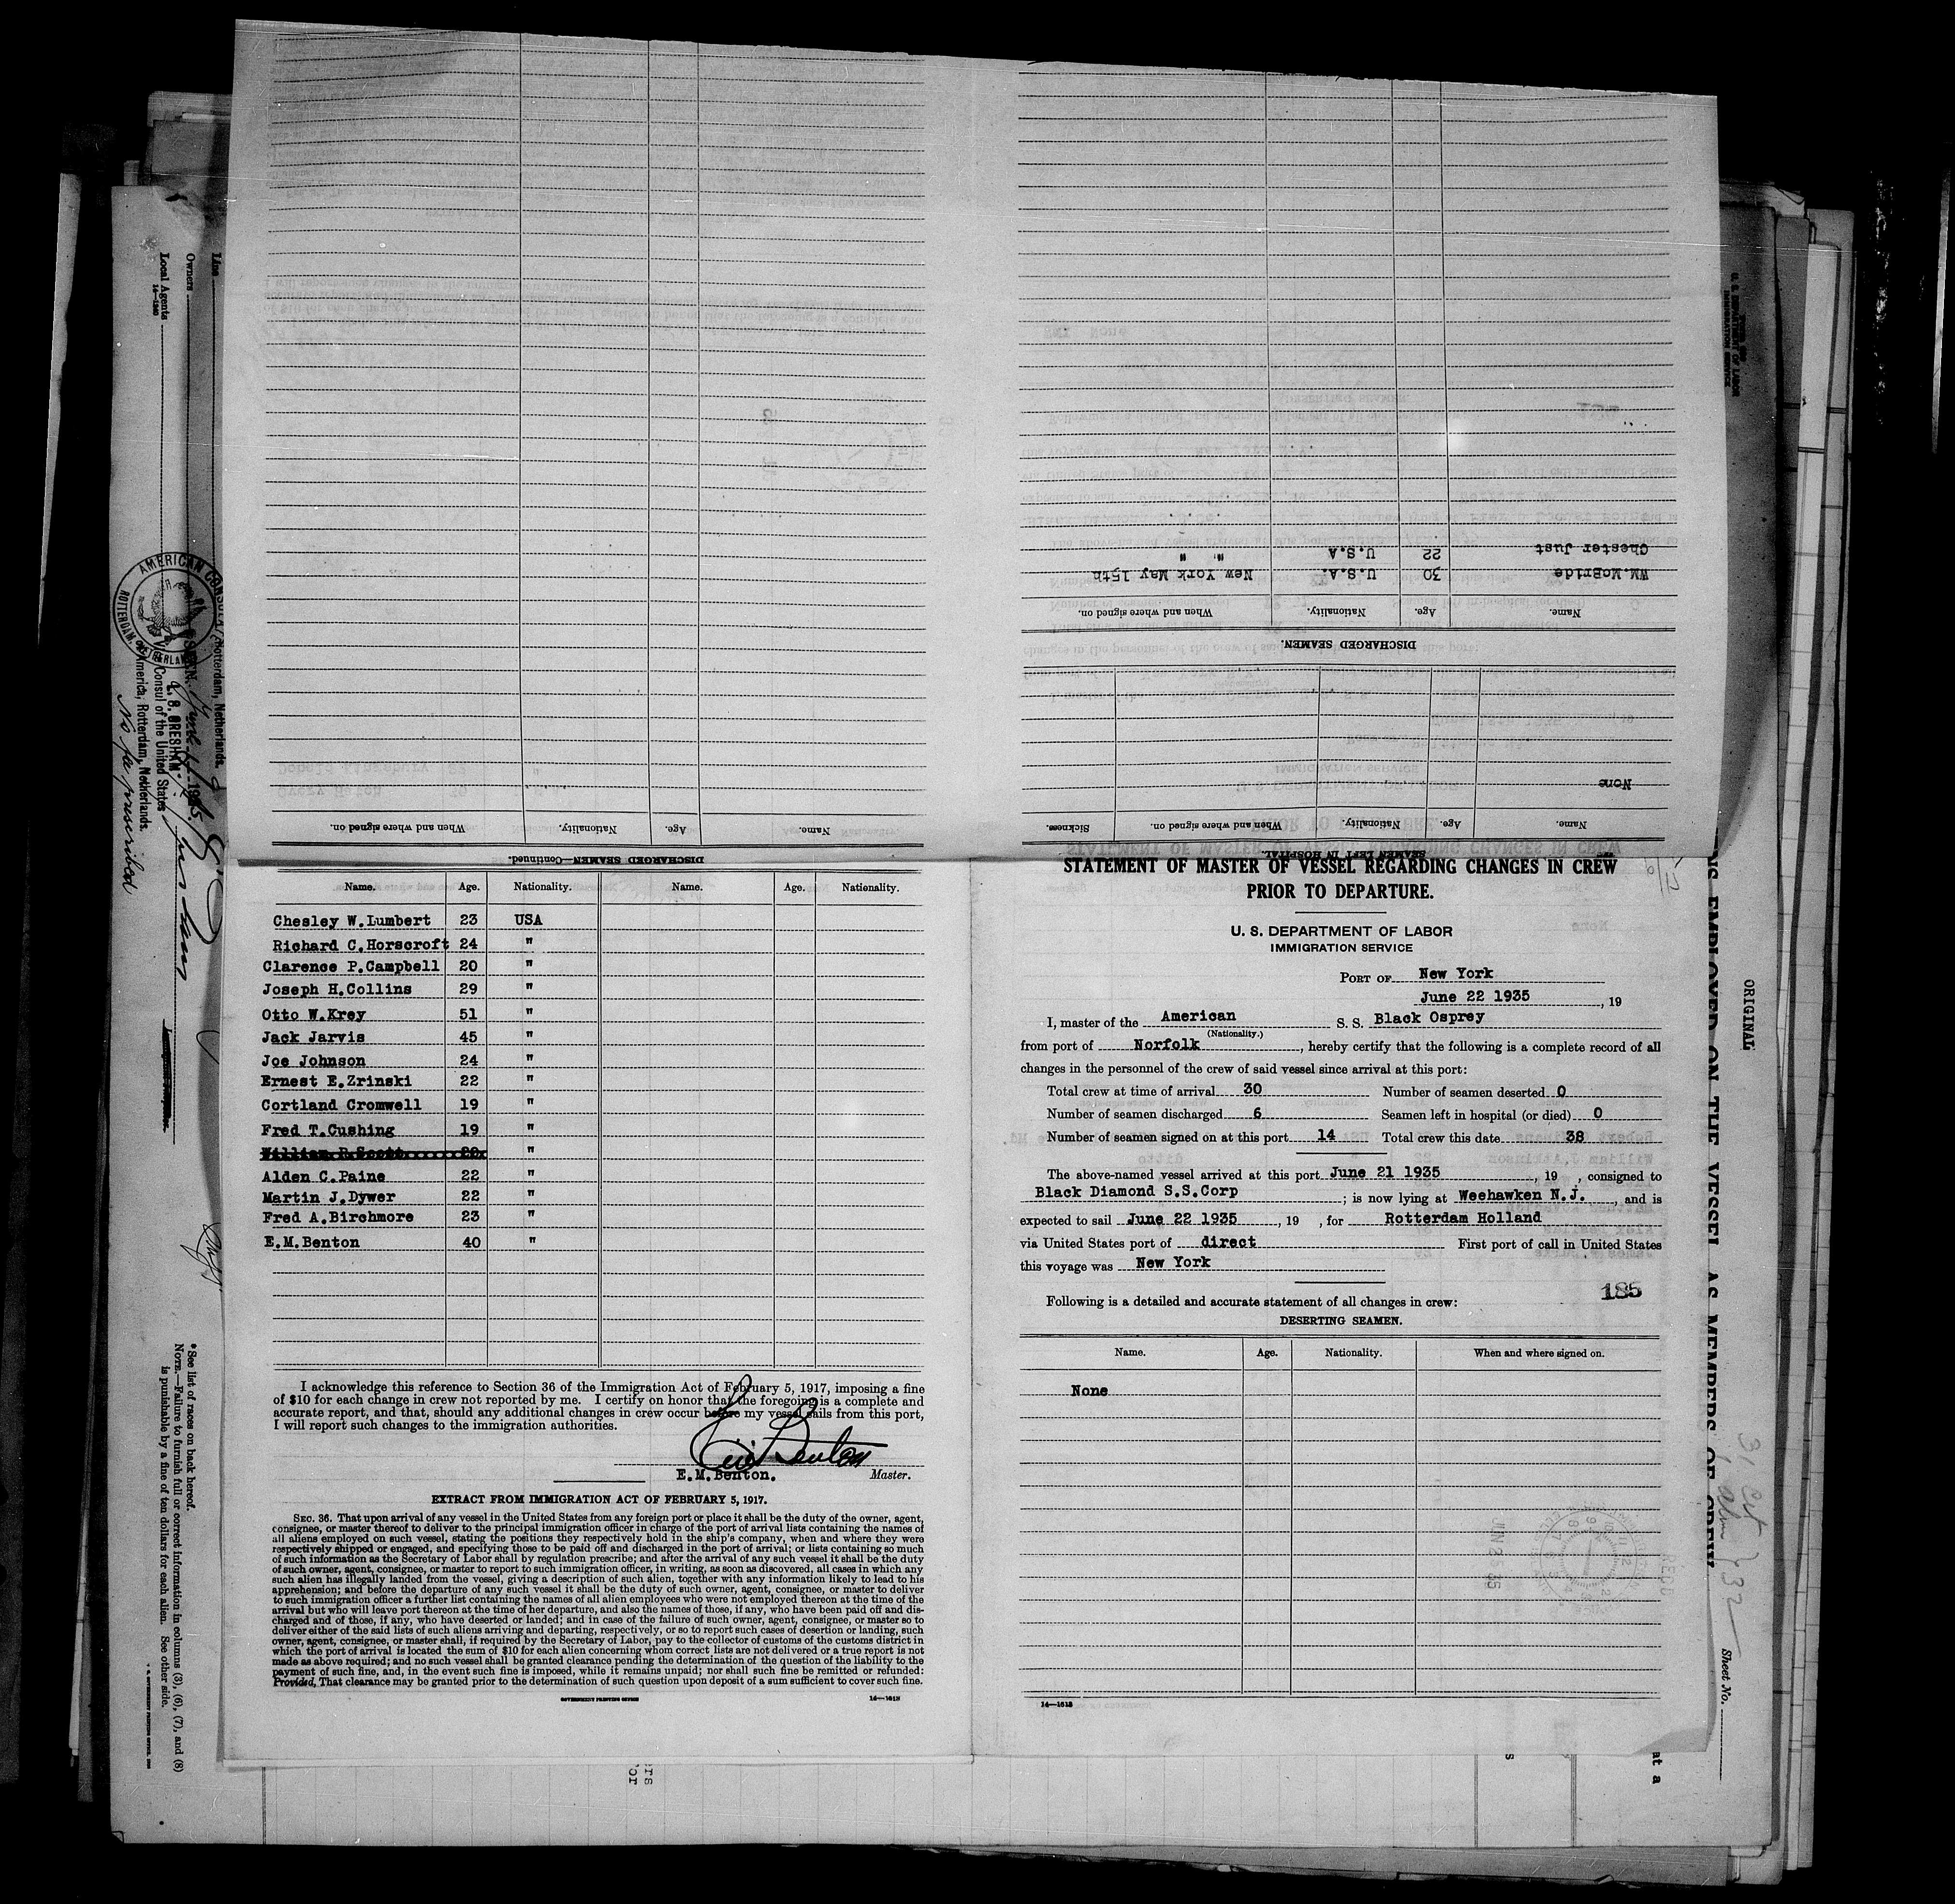 DISCHARGED SEAMEN—Continued.
Name. Age. Nationality. When and where signed on.
SEAMEN LEFT IN HOSPITAL.
Name. Age. Nationality. When and where signed on. Sickness.
None
DISCHARGED SEAMEN.
Name. Age. Nationality. When and where signed on.
WM.McBride 30 U.S.A. New York May 15th
Chester Just 22 U.S.A " "
Name. Age. Nationality. Name. Age. Nationality.
Chesley W.Lumbert 23 USA
Richard C.Horscroft 24 "
Clarence P.Campbell 20 "
Joseph H.Collins 29 "
Otto W.Krey 51 "
Jack Jarvis 45 "
Joe Johnson 24 "
Ernest E.Zrinski 22 "
Cortland Cromwell 19 "
Fred T.Cushing 19 "
William R.Scott 20 "
Alden C.Paine 22 "
Martin J.Dywer 22 "
Fred A.Birchmore 23 "
E.M.Benton 40 "
I acknowledge this reference to Section 36 of the Immigration Act of February 5, 1917, imposing a fine
of $10 for each change in crew not reported by me. I certify on honor that the foregoing is a complete and
accurate report, and that, should any additional changes in crew occur before my vessel sails from this port,
I will report such changes to the immigration authorities.
E.M.Benton. Master.
EXTRACT FROM IMMIGRATION ACT OF FEBRUARY 5, 1917.
SEC. 36. That upon arrival of any vessel in the United States from any foreign port or place it shall be the duty of the owner, agent,
consignee, or master thereof to deliver to the principal immigration officer in charge of the port of arrival lists containing the names of
all aliens employed on such vessel, stating the positions they respectively hold in the ship's company, when and where they were
respectively shipped or engaged, and specifying those to be paid off and discharged in the port of arrival; or lists containing so much
of such information as the Secretary of Labor shall by regulation prescribe; and after the arrival of any such vessel it shall be the duty
of such owner, agent, consignee, or master to report to such immigration officer, in writing, as soon as discovered, all cases in which any
such alien has illegally landed from the vessel, giving a description of such alien, together with any information likely to lead to his
apprehension; and before the departure of any such vessel it shall be the duty of such owner, agent, consignee, or master to deliver
to such immigration officer a further list containing the names of all alien employees who were not employed thereon at the time of the
arrival but who will leave port thereon at the time of her departure, and also the names of those, if any, who have been paid off and dis-
charged and of those, if any, who have deserted or landed; and in case of the failure of such owner, agent, consignee, or master so to
deliver either of the said lists of such aliens arriving and departing, respectively, or so to report such cases of desertion or landing, such
owner, agent, consignee, or master shall, if required by the Secretary of Labor, pay to the collector of customs of the customs district in
which the port of arrival is located the sum of $10 for each alien concerning whom correct lists are not delivered or a true report is not
made as above required; and no such vessel shall be granted clearance pending the determination of the question of the liability to the
payment of such fine, and, in the event such fine is imposed, while it remains unpaid; nor shall such fine be remitted or refunded:
Provided, That clearance may be granted prior to the determination of such question upon deposit of a sum sufficient to cover such fine.
GOVERNMENT PRINTING OFFICE 14—1518
STATEMENT OF MASTER OF VESSEL REGARDING CHANGES IN CREW
PRIOR TO DEPARTURE.
U. S. DEPARTMENT OF LABOR
IMMIGRATION SERVICE
PORT OF New York
June 22 1935, 19
I, master of the American S. S. Black Osprey
(Nationality.)
from port of Norfolk, hereby certify that the following is a complete record of all
changes in the personnel of the crew of said vessel since arrival at this port:
Total crew at time of arrival 30 Number of seamen deserted 0
Number of seamen discharged 6 Seamen left in hospital (or died) 0
Number of seamen signed on at this port 14 Total crew this date 38
The above-named vessel arrived at this port June 21 1935, 19 , consigned to
Black Diamond S.S.Corp ; is now lying at Weehawken N.J., and is
expected to sail June 22 1935, 19 , for Rotterdam Holland
via United States port of direct First port of call in United States
this voyage was New York
185
Following is a detailed and accurate statement of all changes in crew:
DESERTING SEAMEN.
Name. Age. Nationality. When and where signed on.
None
14—1518
JUN 25 35
REC'D
Line
Owners
Local Agents
14—1240
AMERICAN CONSUL
ROTTERDAM, NETHERLANDS
Rotterdam, Netherlands.
SEEN
1935.
Vice Consul of the United States
of America, Rotterdam, Netherlands.
No fee prescribed
*See list of races on back hereof.
NOTE.—Failure to furnish full or correct information in columns (3), (6), (7), and (8)
is punishable by a fine of ten dollars for each alien. See other side.
U. S. DEPARTMENT OF LABOR
IMMIGRATION SERVICE
ORIGINAL
EMPLOYED ON THE VESSEL AS MEMBERS OF CREW
Sheet No.
at a